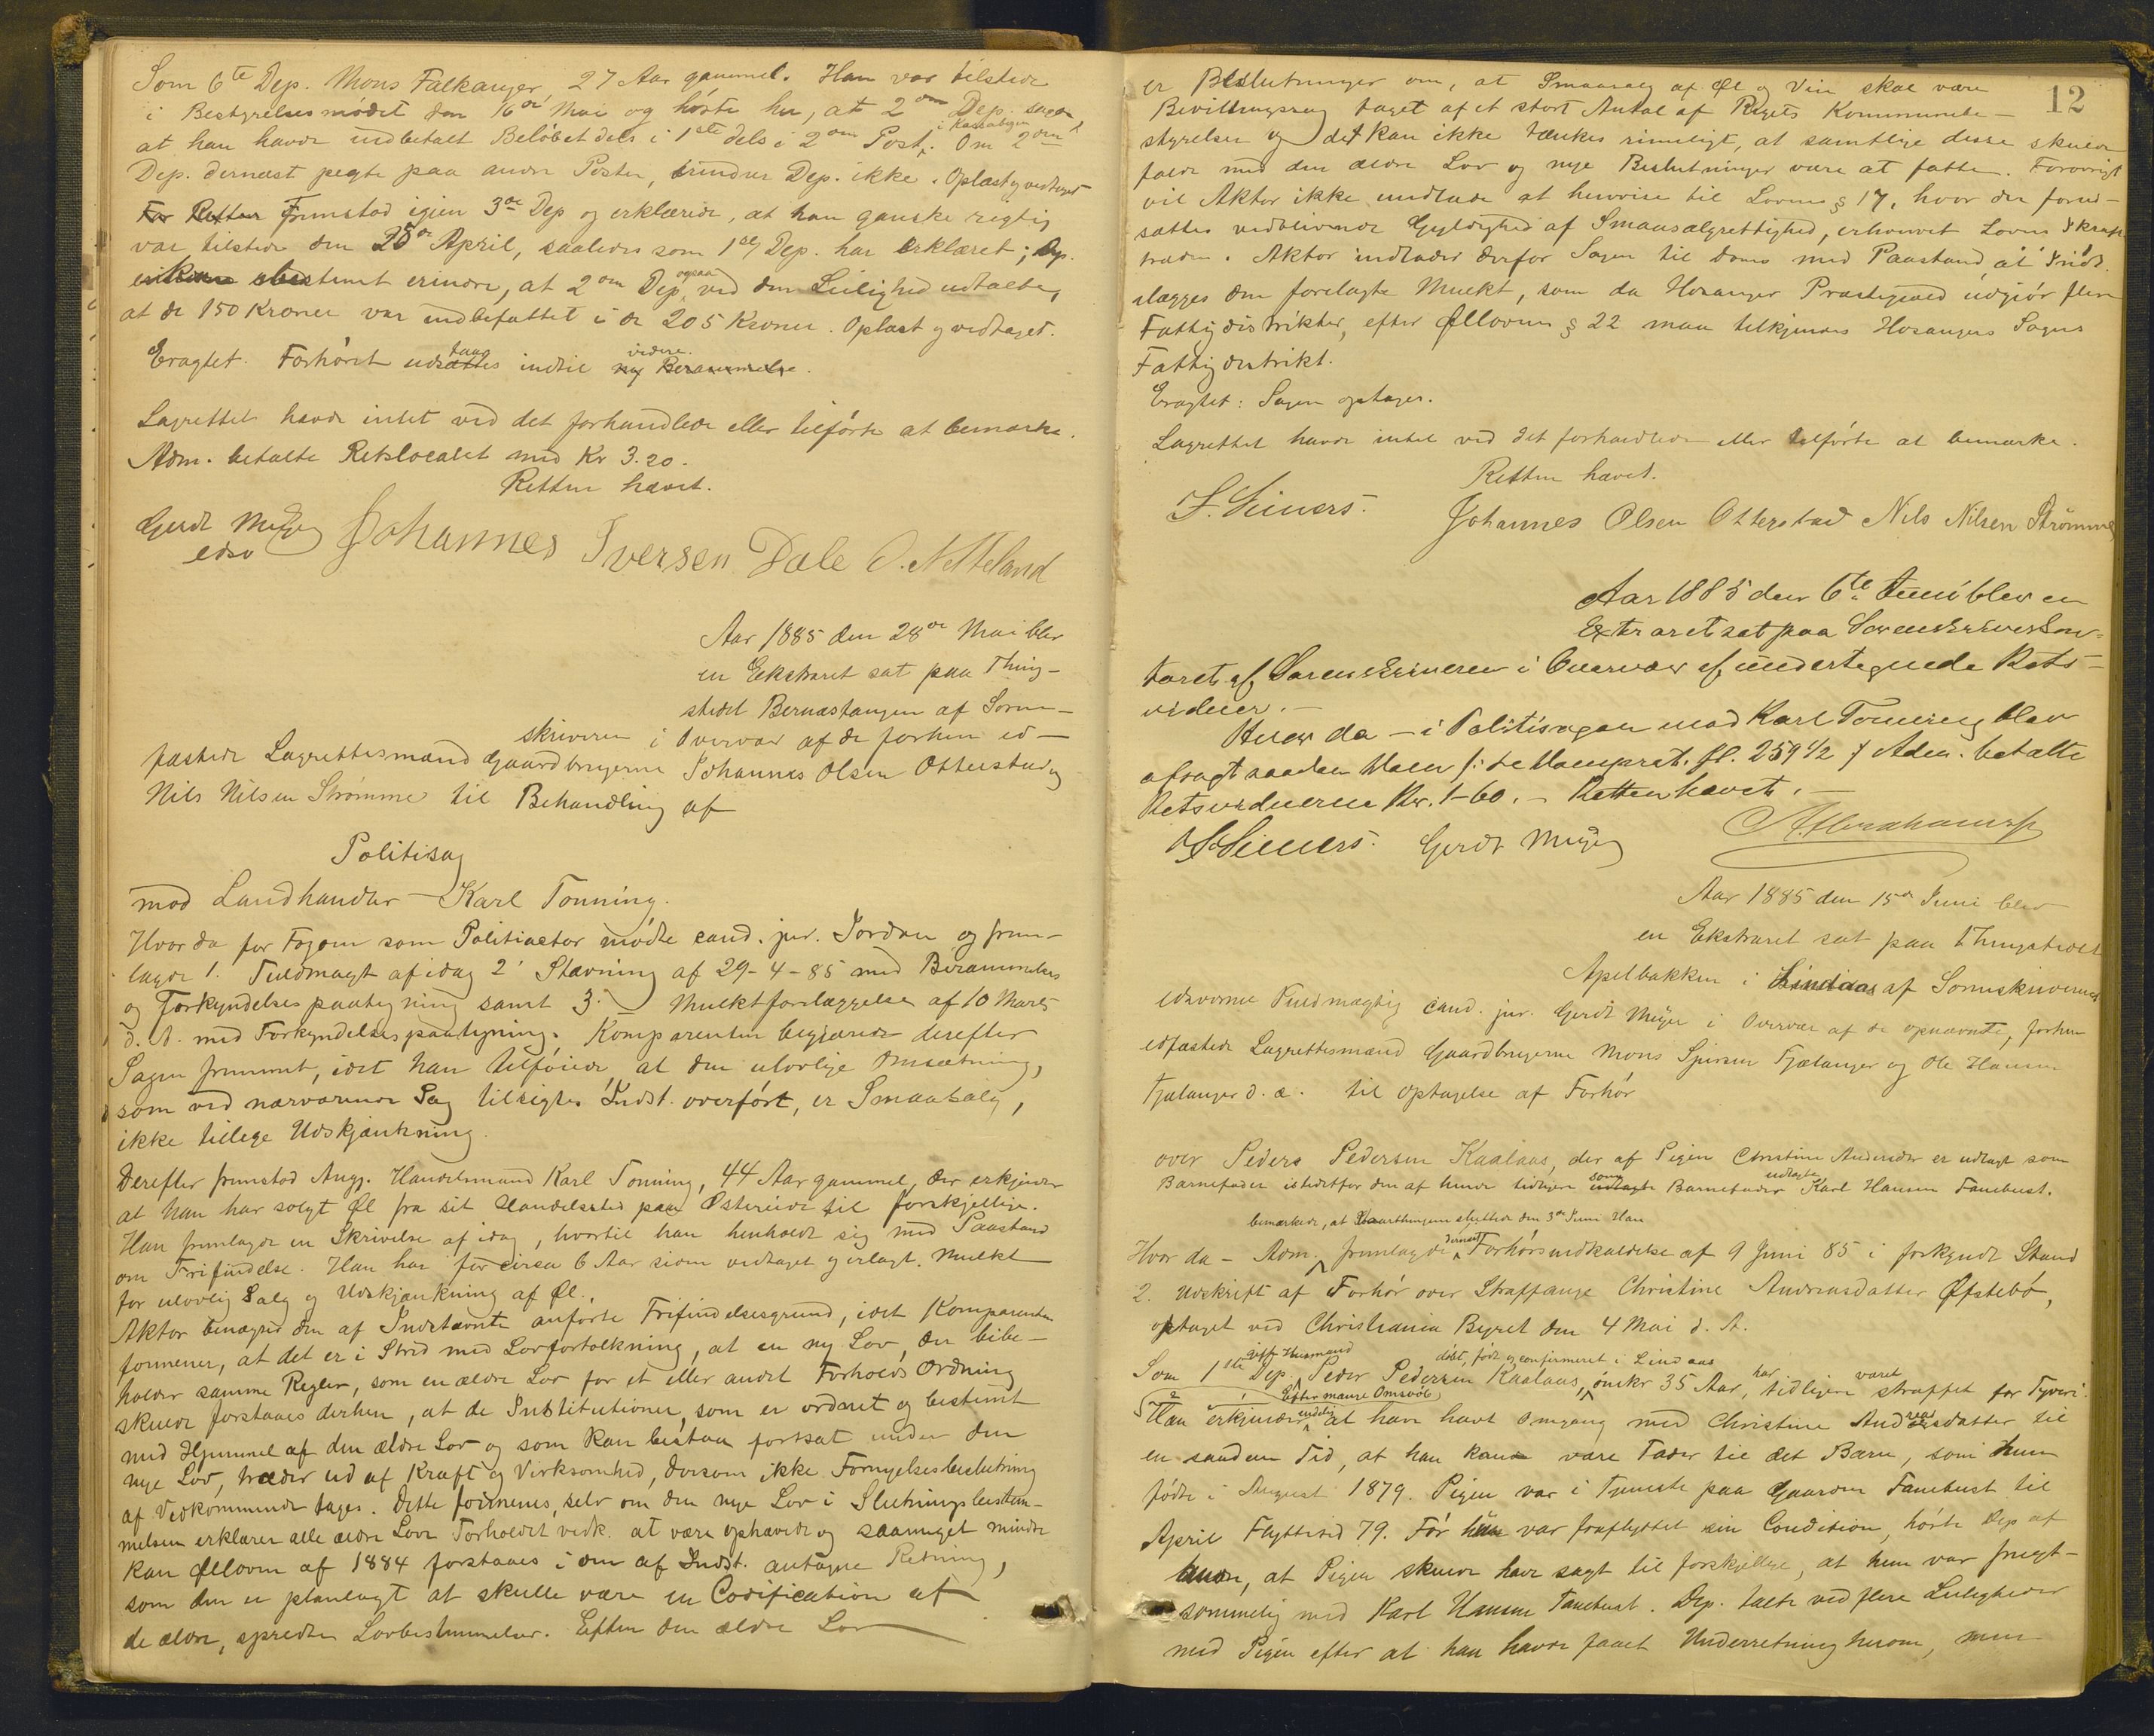 Som 6te Dep. Mons Falkanger, 27 Aar gammel. Han var tilstede
i Bestyrelsesmødet den 16de Mai og hørte her, at 2den Dep. sagde,
at han havde indbetalt Beløbet dels i 1ste dels i 2den Post i Kassabogen. Om 2den
Dep. dernæst pegte paa andre Poster, erindrer Dep. ikke. Oplæst og vedtaget
For Retten Fremstod igjen 3de Dep og erklærede, at han ganske rigtig
var tilstede den 25de April, saaledes som 1ste Dep. har erklæret; Dep.
bestemt erindre, at 2den Dep. ogsaa ved den Leilighed udtalte,
at de 150 Kroner var indbefattet i de 205 Kroner. Oplæst og vedtaget.
Eragtet. Forhøret udsættes indtil videre ny Berammelse.
Lagrettet havde intet ved det forhandlede eller tilførte at bemærke.
Adm. betalte Retslocalet med Kr 3.20.
Retten hævet.
Gerdt Meyer Johannes Iversen Dale O. Netteland
edsv
Aar 1885 den 28de Mai blev
en Ekstraret sat paa Thing-
stedet Bernæstangen af Soren-
skriveren i Overvær af de forhen ed-
fæstede Lagrettesmænd Gaardbrugerne Johannes Olsen Otterstad og
Nils Nilsen Strømme til Behandling af
Politisag
mod Landhandler Karl Tonning.
Hvor da for Fogden som Politiactor mødte cand. jur. Jordan og frem-
lagde 1. Fuldmagt af idag 2. Stævning af 29-4-85 med Berammelses
og Forkyndelsespaategning samt 3. Mulktforelæggelse af 10 Marts
d. A. med Forkyndelsespaategning. Komparenten begjærede derefter
Sagen fremmet, idet han tilføiede, at den ulovlige Omsætning,
som ved nærværende Sag tilsigtes Indst. overført, er Smaasalg,
ikke tillige Udskjænkning.
Derefter fremstod Ang. Handelsmand Karl Tonning, 44 Aar gammel, der erkjender
at han har solgt Øl fra sit Handelssted paa Østereide til forskjellige.
Han fremlagde en Skrivelse af idag, hvortil han henholdt sig med Paastand
om Frifindelse. Han har for circa 6 Aar siden vedtaget og erlagt Mulkt
for ulovlig Salg og Udskjænkning af Øl.
Aktor benægted den af Indstævnte anførte Frifindelsesgrund, idet Komparenten
formener, at det er i Strid med Lovfortolkning, at en ny Lov, der bibe-
holder samme Regler, som en ældre Lov for et eller andet Forholds Ordning
skulde forstaaes derhen, at de Institutioner, som er ordnet og bestemt
med Hjemmel af den ældre Lov og som kan bestaa fortsat under den
nye Lov, træder ud af Kraft og Virksomhed, dersom ikke Fornyelsesbeslutning
af Vedkommende tages. Dette formenes, selv om den nye Lov i Slutningsbestem-
melsen erklærer alle ældre Love Forholdet vedk. at være ophævede og saameget mindre
kan Ølloven af 1884 forstaaes i den af Indst. antagne Retning,
som den er planlagt at skulle være en Codification af
de ældre, spredte Lovbestemmelser. Efter den ældre Lov
12
er Beslutninger om, at Smaasalg af Øl og Vin skal være
Bevillingssag taget af et stort Antal af Rigets Kommunebe-
styrelser og det kan ikke tænkes rimeligt, at samtlige disse skulde
falde med den ældre Lov og nye Beslutninger være at fatte. Forøvrigt
vil Aktor ikke undlade at henvise til Lovens § 17, hvor der forud-
sættes vedblivende Gyldighed af Smaasalgsrettighed, erhvervet Lovens Ikraft-
træden. Aktor indlader derfor Sagen til Doms med Paastand, at Indst.
ilægges den forelagte Mulkt, som da Hosanger Præstegjeld udgjør flere
Fattigdistrikter, efter Øllovens § 22 maa tilkjendes Hosangers Sogns
Fattigdistrikt.
Eragtet: Sagen optages.
Lagrettet havde intet ved det forhandlede eller tilførte at bemærke.
Retten hævet.
Johannes Olsen Otterstad Nils Nilsen Strømme
Aar 1885 den 6te Juni blev en
Extraret sat paa Sorenskriverkon-
toret af Sorenskriveren i Overvær af undertegnede Rets-
vidner.
Hvor da – i Politisagen mod Karl Tonning blev
afsagt saadan Dom /: se Domsprot. fl. 259 1/2 / Adm. betalte
Retsvidnerne Kr. 1-60. – Retten hævet. –
Gerdt Meyer
Aar 1885 den 15de Juni blev
en Ekstraret sat paa Thingstedet
Apelbakken i Lindaas af Sorenskriverens
edsvorne Fuldmægtig cand. jur. Gerdt Meyer i Overvær af de opnævnte, forhen
edfæstede Lagrettesmænd Gaardbrugerne Mons Fjælanger og Ole Hansen
Fjælanger d. æ. til Optagelse af Forhør
over Peders Pedersen Kaalaas, der af Pigen Christine Andersdtr er udlagt som
Barnefader istedetfor den af hende tidligere som udlagte Barnefader Karl Hansen Fanebust.
bemærkede, at Vaarthingene sluttede den 3de Juni. Han
Hvor da – Adm. fremlagde dernæst Forhørsindkaldelse af 9 Juni 85 i forkyndt Stand
2. Udskrift af Forhør over Straffange Christine Andreasdatter Øfstebø,
optaget ved Christiania Byret den 4 Mai d. A.
Som 1ste Dep. gift Husmand Peder Pedersen Kaalaas, døbt, født og confirmeret i Lindaas, omkr 35 Aar, har tidligere været straffet for Tyveri.
Han erkjender Efter mange Omsvøb endelig at have havt Omgang med Christine Andreasdatter til
en saadan Tid, at han kan være Fader til det Barn, som hun
fødte i August 1879. Pigen var i Tjeneste paa Gaarden Fanebust til
April Flyttetid 79. Før hun var fraflyttet sin Condition, hørte Dep af
andre, at Pigen skulde have sagt til forskjellige, at hun var frugt-
sommelig med Karl Hansen Fanebust. Dep. talte ved flere Leiligheder
med Pigen efter at han havde faaet Underretning herom, men